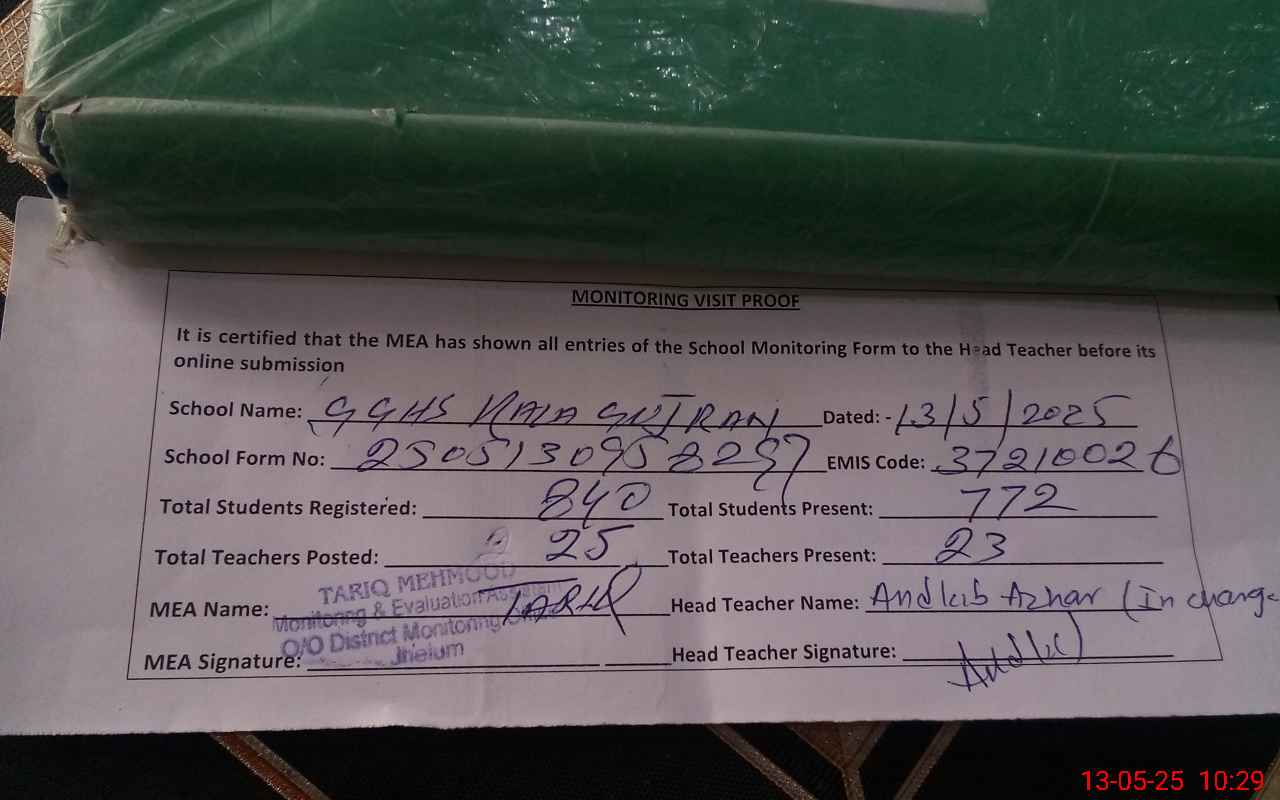 MONITORING VISIT PROOF
It is certified that the MEA has shown all entries of the School Monitoring Form to the Head Teacher before its
online submission
School Name: GGHS KALA GUJRAN Dated: - 13/5/2025
School Form No: EMIS Code: 37210026
Total Students Registered: 840 Total Students Present: 772
Total Teachers Posted: 25 Total Teachers Present: 23
TARIQ MEHMOOD
Monitoring & Evaluation Assistant
O/O District Monitoring Office
Jhelum
MEA Name: TARIQ Head Teacher Name: Andleib Azhar (In charge
MEA Signature: Head Teacher Signature:
13-05-25 10:29